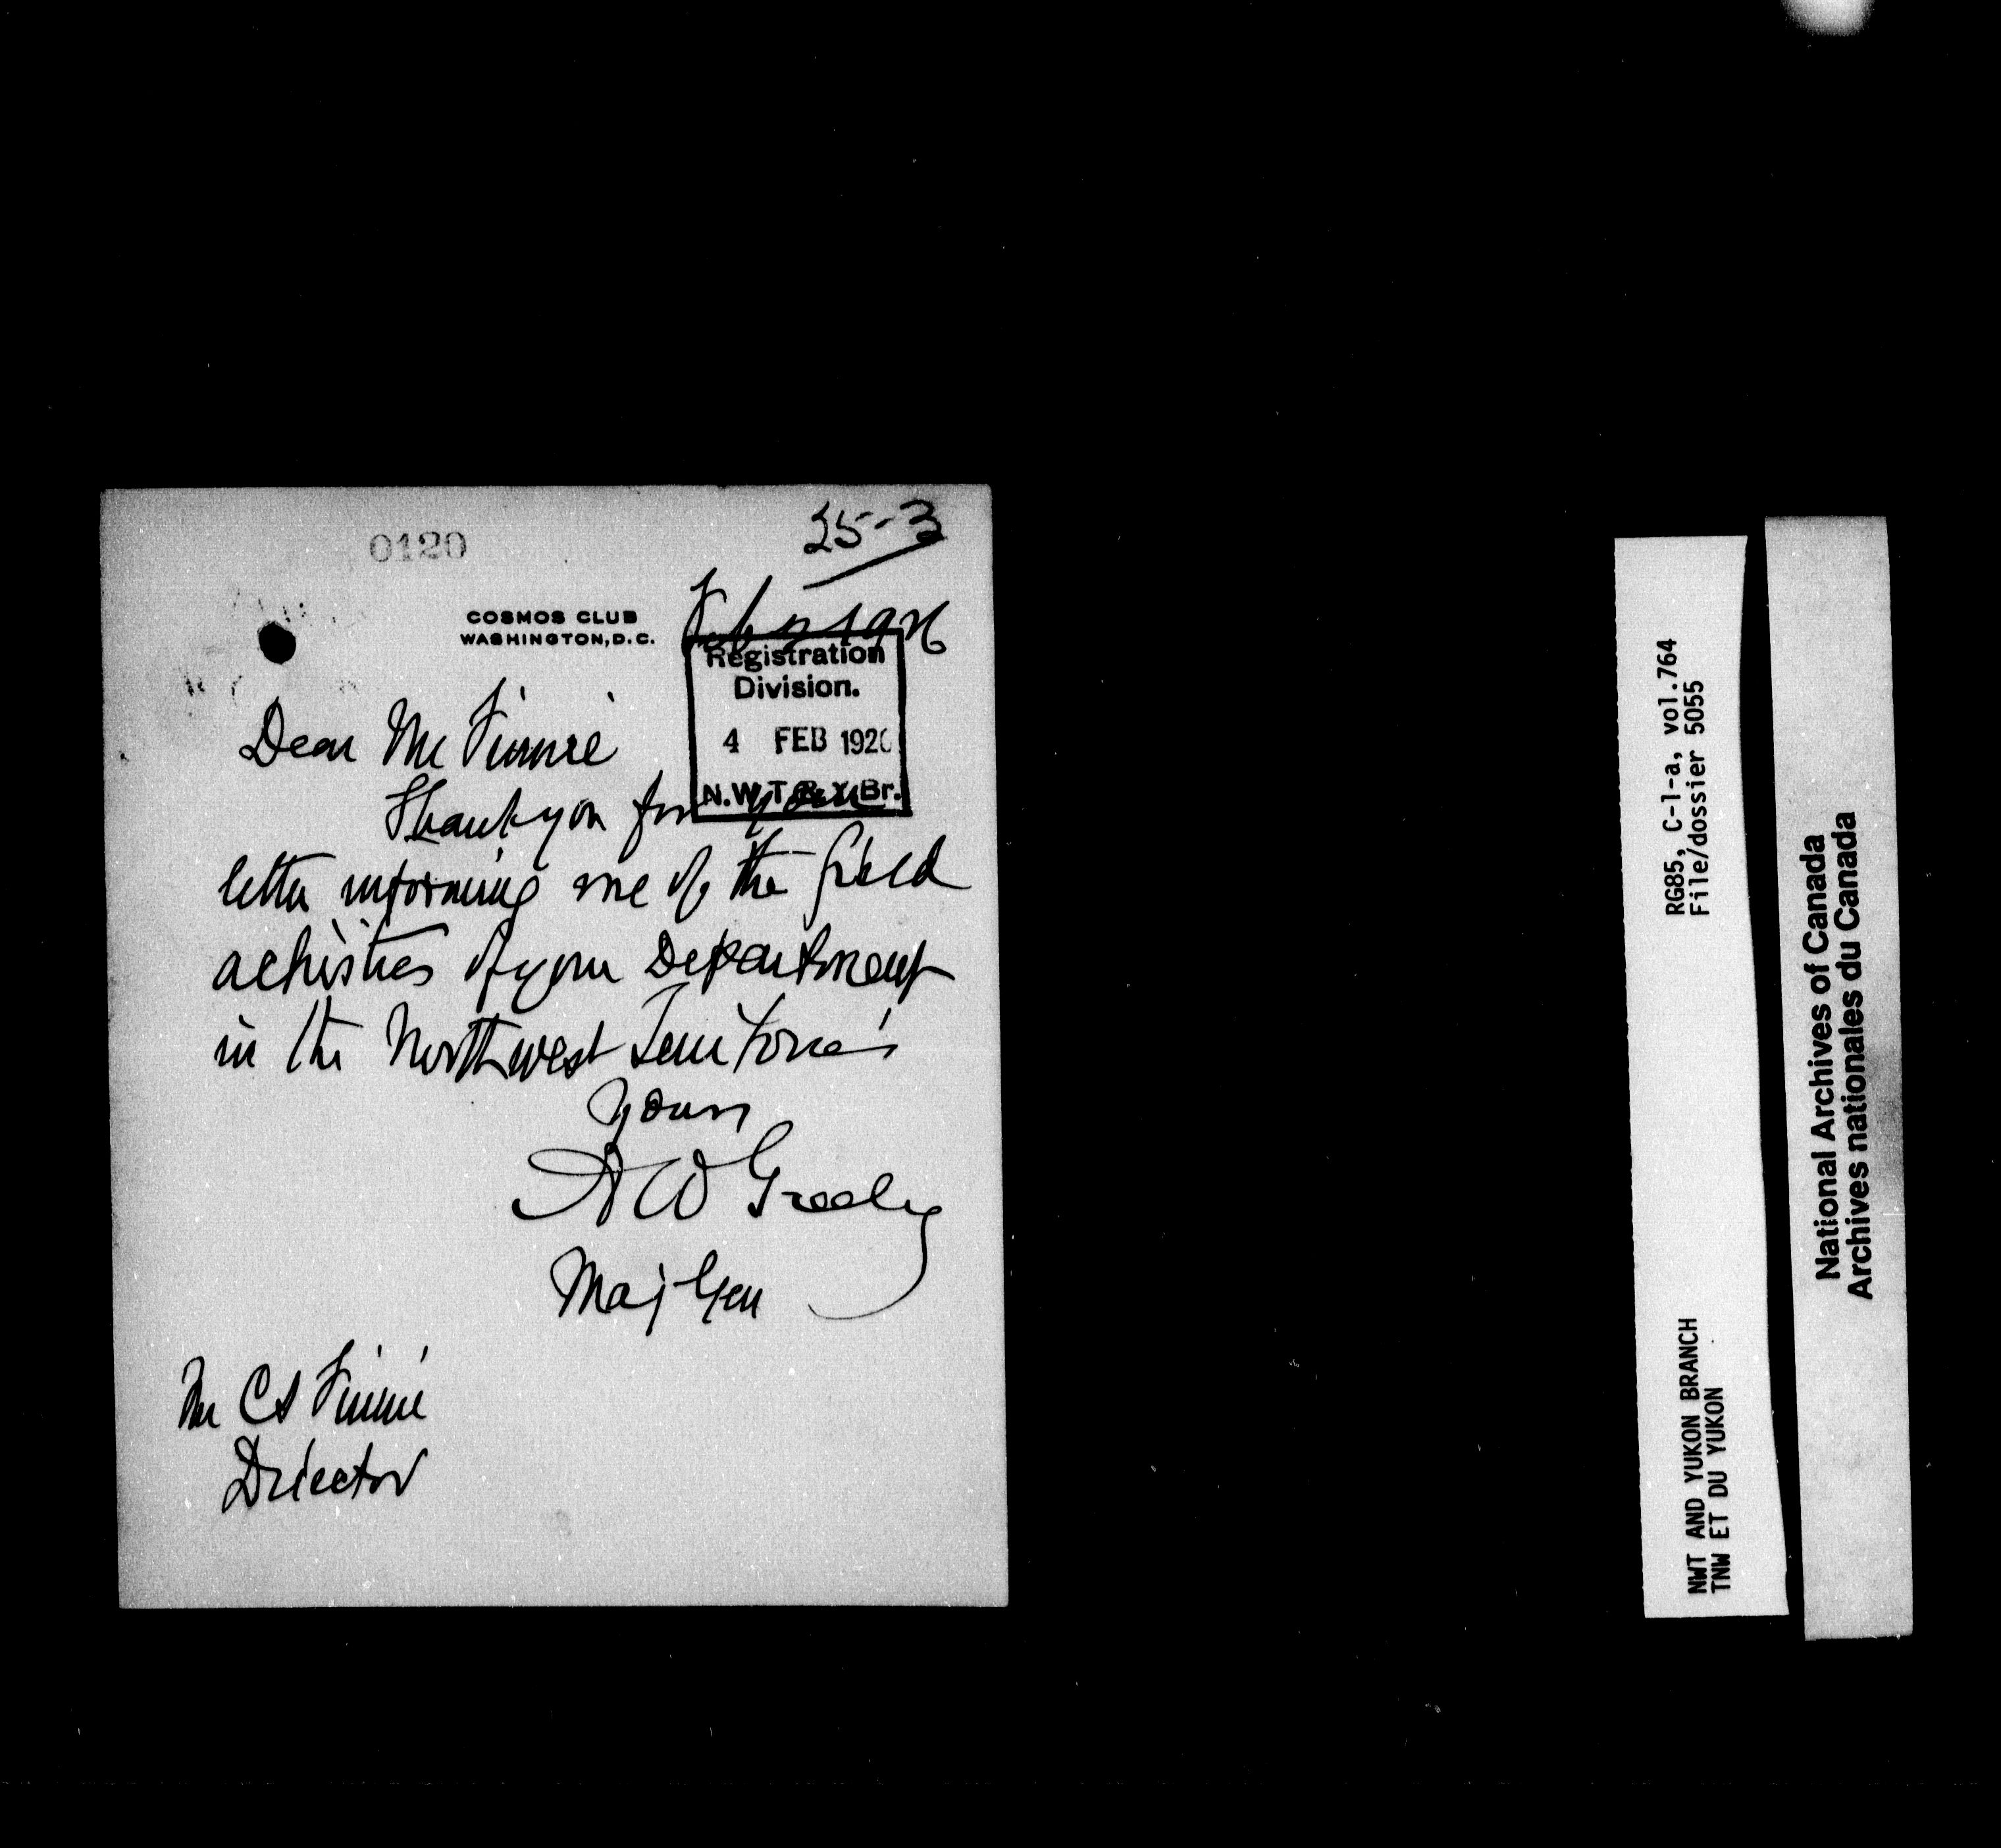 0120
25-3
COSMOS CLUB
WASHINGTON, D.C.
Feb 2 1926
Registration
Division.
4 FEB 1926
N.W.T. & Y. Br.
Dear Mr Finnie
Thank you for your
letter informing me of the field
activities of your Department
in the Northwest Territories
Yours
A W Greely
Maj Gen
Mr C S Finnie
Director
RG85, C-1-a, vol.764
File/dossier 5055
NWT AND YUKON BRANCH
TNW ET DU YUKON
National Archives of Canada
Archives nationales du Canada